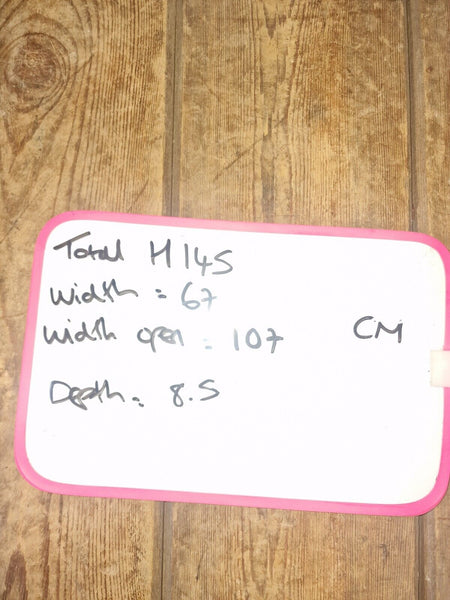 Total H 145
Width = 67
Width open = 107 CM
Depth = 8.5